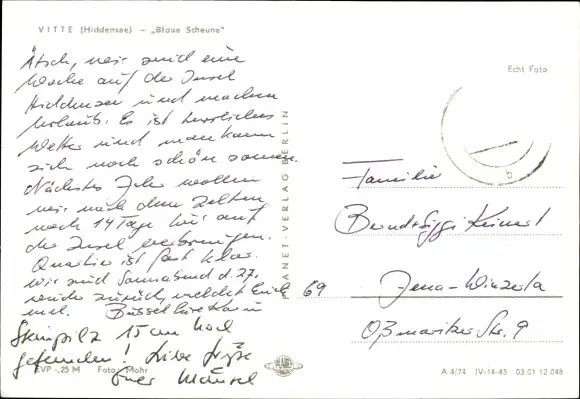 VITTE (Hiddensee) – „Blaue Scheune"
Ätsch, wir sind eine
Woche auf der Insel
Hiddensee und machen
Urlaub. Es ist herrliches
Wetter und man kann
sich noch schön sonnen.
Nächstes Jahr wollen
wir nach dem Zelten
noch 14 Tage hier auf
der Insel verbringen.
Quartier ist fast klar.
Wir sind Sonnabend d. 27.
wieder zurück, meldet Euch
mal.
Steinpilz 15 cm hoch
gefunden! Liebe Grüße
Euer
EVP -,25 M Foto: Mohr
PLANET-VERLAG BERLIN
Echt Foto
b
Familie
Bernd + Siggi Keinert
69 Jena-Winzerla
Oßmaritzer Str. 9
A 4/74 IV-14-45 03 01 12 048